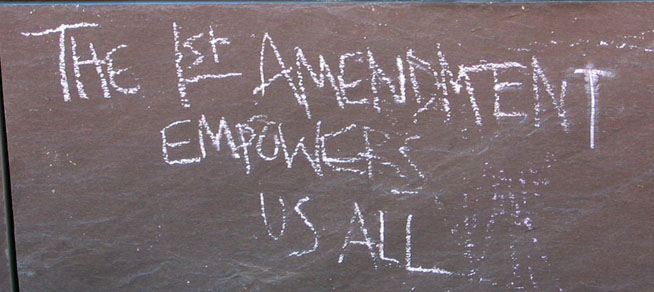 THE 1st AMENDMENT
EMPOWERS
US ALL